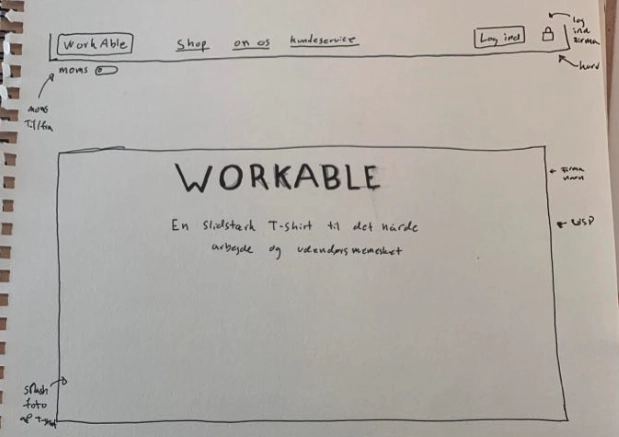 WorkAble shop om os kundeservice Log ind
log ind firma
moms
kurv
moms til/fra
WORKABLE
firma navn
En slidstærk T-shirt til det hårde
USP
arbejde og udendørsmennesket
splash foto af T-shirt